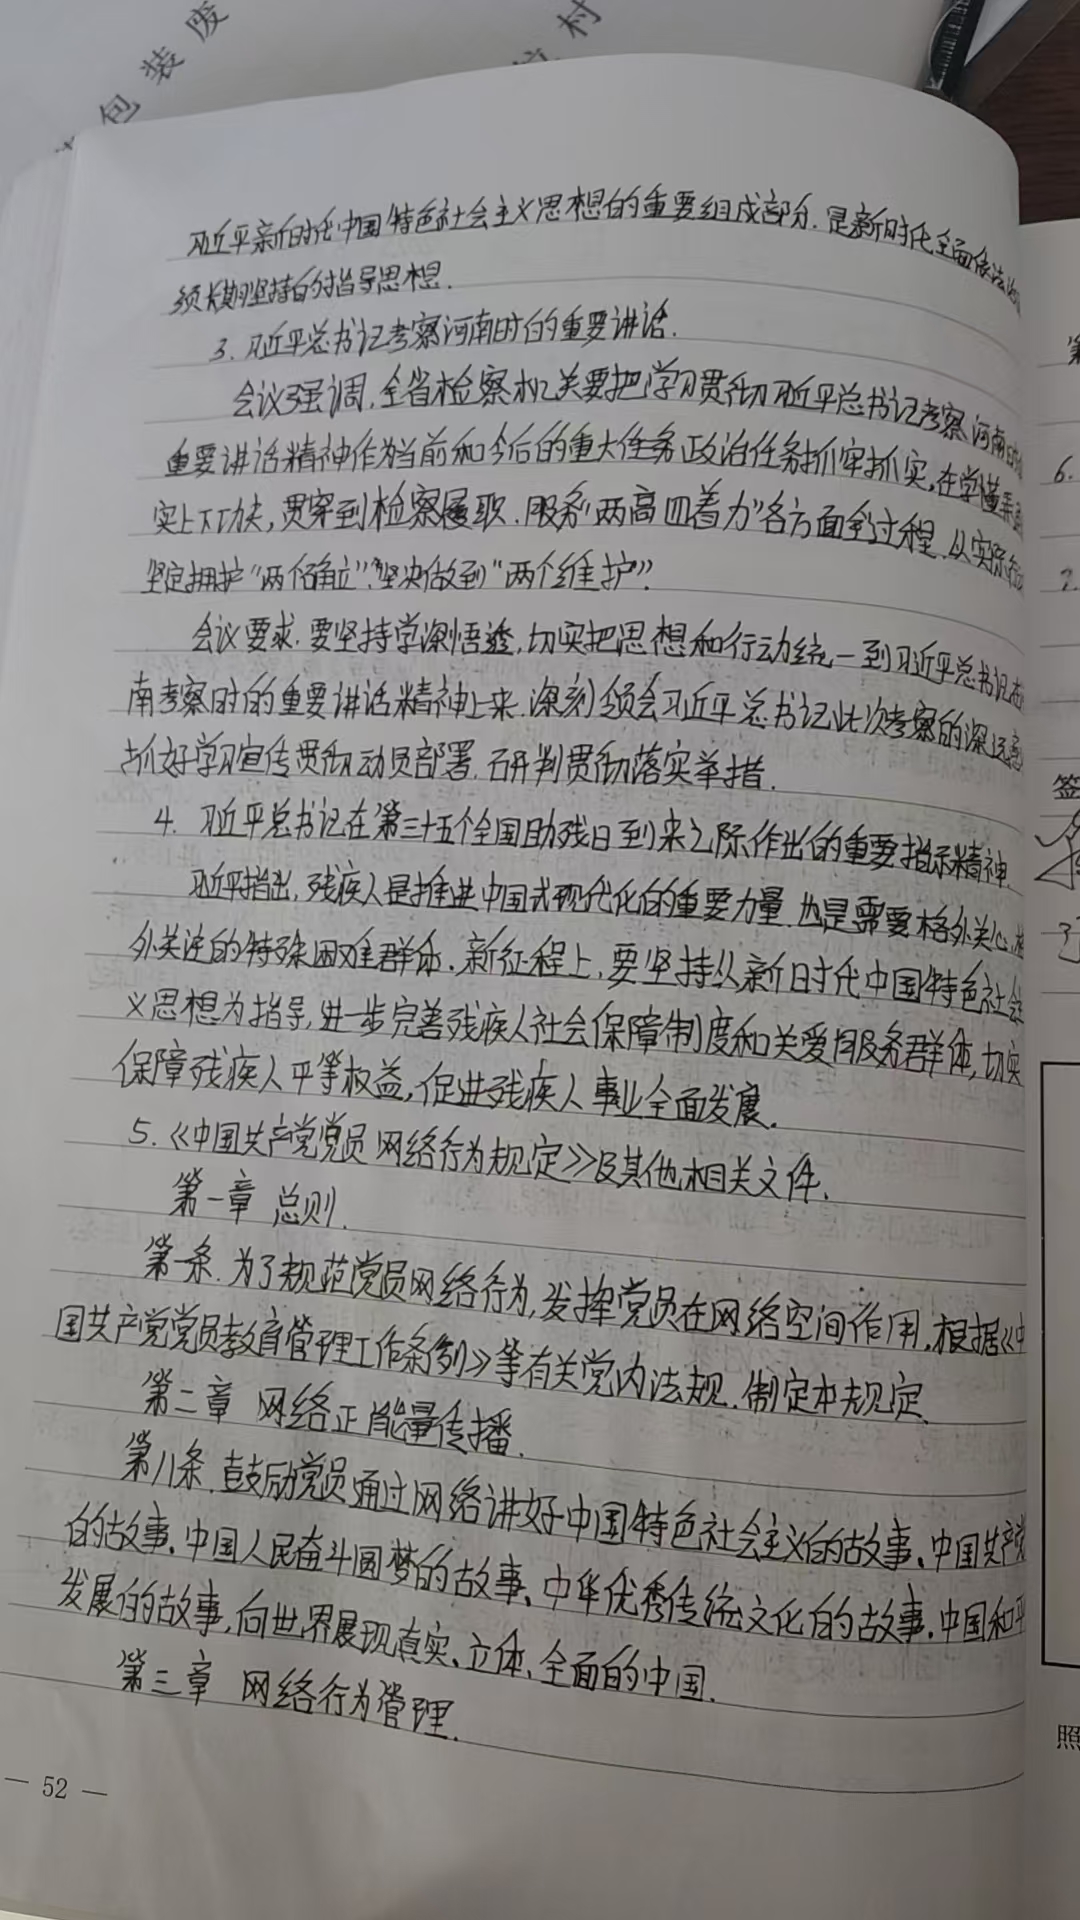 包装废
村
习近平新时代中国特色社会主义思想的重要组成部分.是新时代全面依法治
须长期坚持的指导思想.
3.习近平总书记考察河南时的重要讲话.
会议强调.全省检察机关要把学习贯彻习近平总书记考察河南时
重要讲话精神作为当前和今后的重大任务政治任务抓牢抓实,在学懂弄
实上下功夫,贯穿到检察履职.服务"两高四着力"各方面全过程.从实际
坚定拥护"两个确立","坚决做到"两个维护".
会议要求.要坚持学深悟透,切实把思想和行动统一到习近平总书记在
南考察时的重要讲话精神上来.深刻领会习近平总书记此次考察的深远
抓好学习宣传贯彻动员部署.研判贯彻落实举措.
4.习近平总书记在第三十五个全国助残日到来之际作出的重要指示精神.
习近平指出,残疾人是推进中国式现代化的重要力量.也是需要格外关心.
外关注的特殊困难群体.新征程上,要坚持以新时代中国特色社会
义思想为指导,进一步完善残疾人社会保障制度和关爱服务群体,切实
保障残疾人平等权益,促进残疾人事业全面发展.
5.《中国共产党党员网络行为规定》及其他相关文件.
第一章 总则.
第一条.为了规范党员网络行为,发挥党员在网络空间作用.根据《中
国共产党党员教育管理工作条例》等有关党内法规.制定本规定.
第二章 网络正能量传播.
第八条.鼓励党员通过网络讲好中国特色社会主义的故事、中国共产党
的故事、中国人民奋斗圆梦的故事、中华优秀传统文化的故事.中国和平
发展的故事,向世界展现真实、立体、全面的中国.
第三章 网络行为管理.
— 52 —
6.
2.
签
3
照